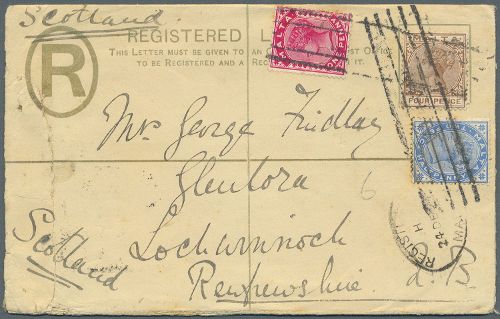 Scotland
REGISTERED
R
THIS LETTER MUST BE GIVEN TO AN OFFICE
TO BE REGISTERED AND A IT.
MALTA
FOUR PENCE
MALTA
Mrs George Findlay
Glenlora
Lochwinnoch
Renfrewshire
N.B.
Scotland
6
24